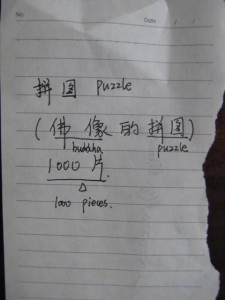 No.
Date
拼图 puzzle
(佛像的拼图)
buddha puzzle
1000 片.
1000 pieces.